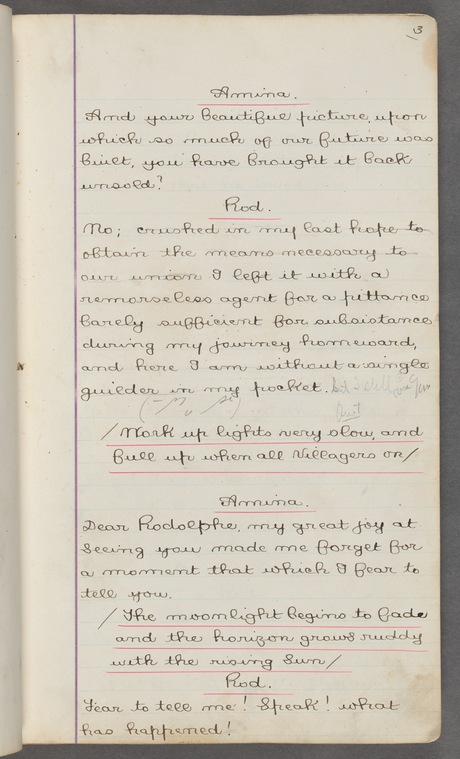 3
Amina.
And your beautiful picture, upon
which so much of our future was
built, you have brought it back
unsold?
Rod.
No; crushed in my last hope to
obtain the means necessary to
our union I left it with a
remorseless agent for a pittance
barely sufficient for subsistance
during my journey homeward,
and here I am without a single
guilder in my pocket. but I still
/Work up lights very slow, and
full up when all Villagers on/
Amina.
Dear Rodolphe, my great joy at
seeing you made me forget for
a moment that which I fear to
tell you.
/The moonlight begins to fade
and the horizon grows ruddy
with the rising Sun/
Rod.
Fear to tell me! Speak! what
has happened!